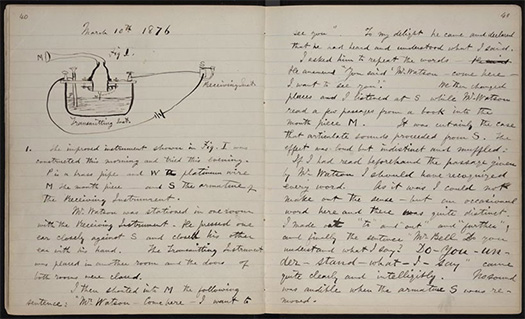 40
March 10th 1876
Fig 1.
M
S
P
W
Receiving Inst.
Transmitting Inst.
1. The improved instrument shown in Fig. I was
constructed this morning and tried this evening.
P is a brass pipe and W the platinum wire
M the mouth piece and S the armature of
the Receiving Instrument.
Mr. Watson was stationed in one room
with the Receiving Instrument. He pressed one
ear closely against S and closed his other
ear with his hand. The Transmitting Instrument
was placed in another room and the doors of
both rooms were closed.
I then shouted into M the following
sentence: "Mr. Watson - Come here - I want to
41
see you". To my delight he came and declared
that he had heard and understood what I said.
I asked him to repeat the words.
He answered "You said 'Mr. Watson - come here -
I want to see you'." We then changed
places and I listened at S while Mr. Watson
read a few passages from a book into the
mouth piece M. It was certainly the case
that articulate sounds proceeded from S. The
effect was loud but indistinct and muffled.
If I had read beforehand the passage given
by Mr. Watson I should have recognized
every word. As it was I could not
make out the sense - but an occasional
word here and there was quite distinct.
I made out "to" and "out" and "further";
and finally the sentence "Mr. Bell Do you
understand what I say? Do - you - un -
der - stand - what - I - say" came
quite clearly and intelligibly. No sound
was audible when the armature S was re-
moved.